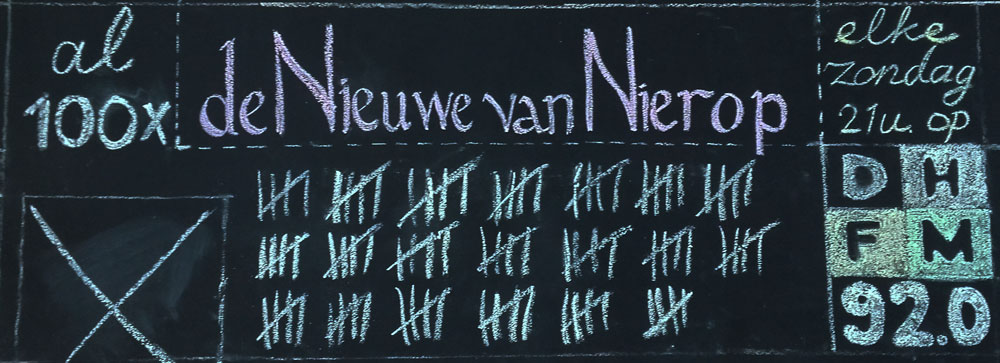 al
100x
de Nieuwe van Nierop
elke
zondag
21u. op
DH
FM
92.0